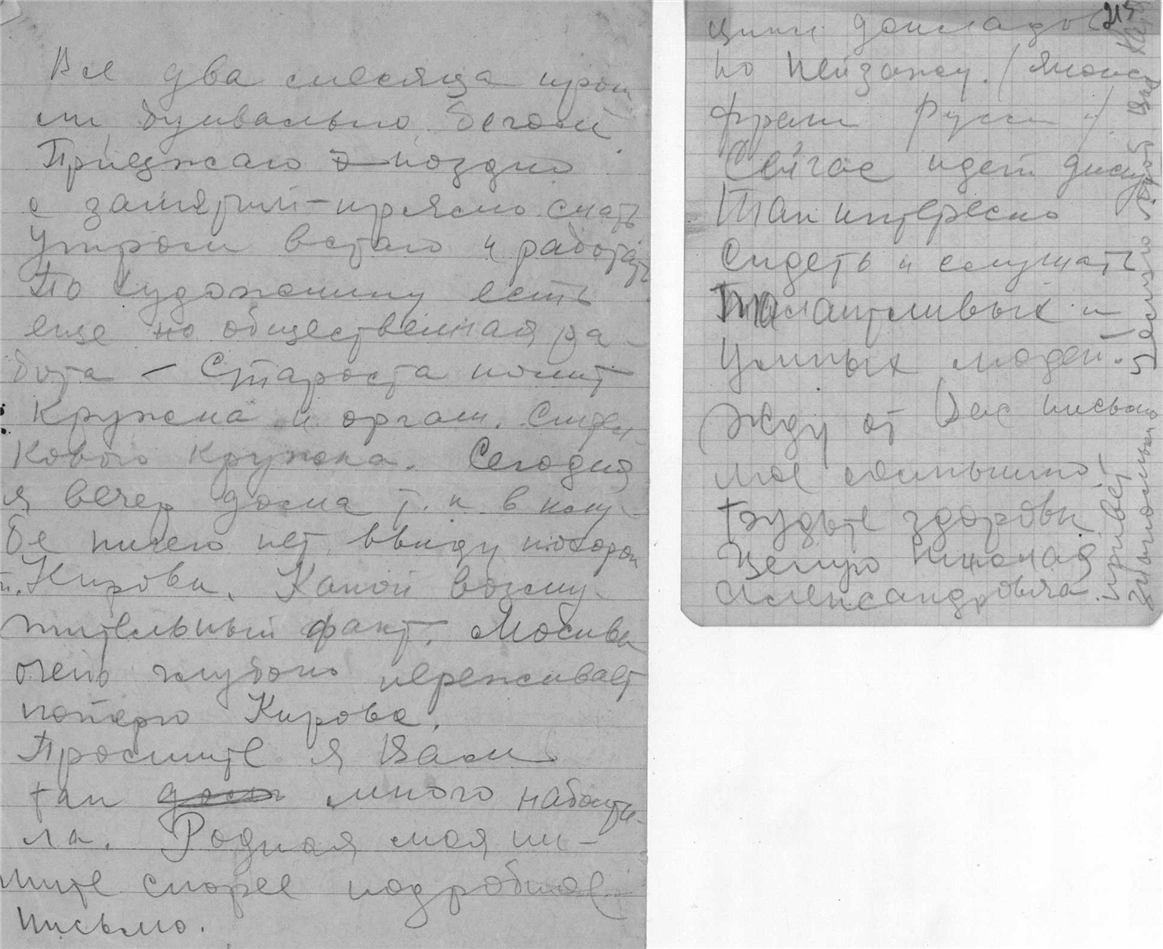 Все два месяца прош
ли буквально бегом.
Приезжаю поздно
с занятий – прямо спать
Утром встаю и работать
По художнику есть
еще но общественная ра-
бота – Староста полит
кружка и орган.
кового кружка. Сегодня
я вечер дома т.к. в клу-
бе ничего нет ввиду похорон
т. Кирова. Какой возму-
тительный факт. Москва
очень глубоко переживает
потерю Кирова.
Простите я Вам
так много наболта-
ла. Родная моя пи-
шите скорее подробное
письмо.
215
цикл докладов
по пейзажу. (Японск
франц Русск.)
Сейчас идет диску
Так интересно
Сидеть и слушать
Талантливых и
Умных людей!
Жду от Вас письма
мое солнышко!
Будьте здоровы
Целую Николая
Александровича.
привет
знакомым
Целую